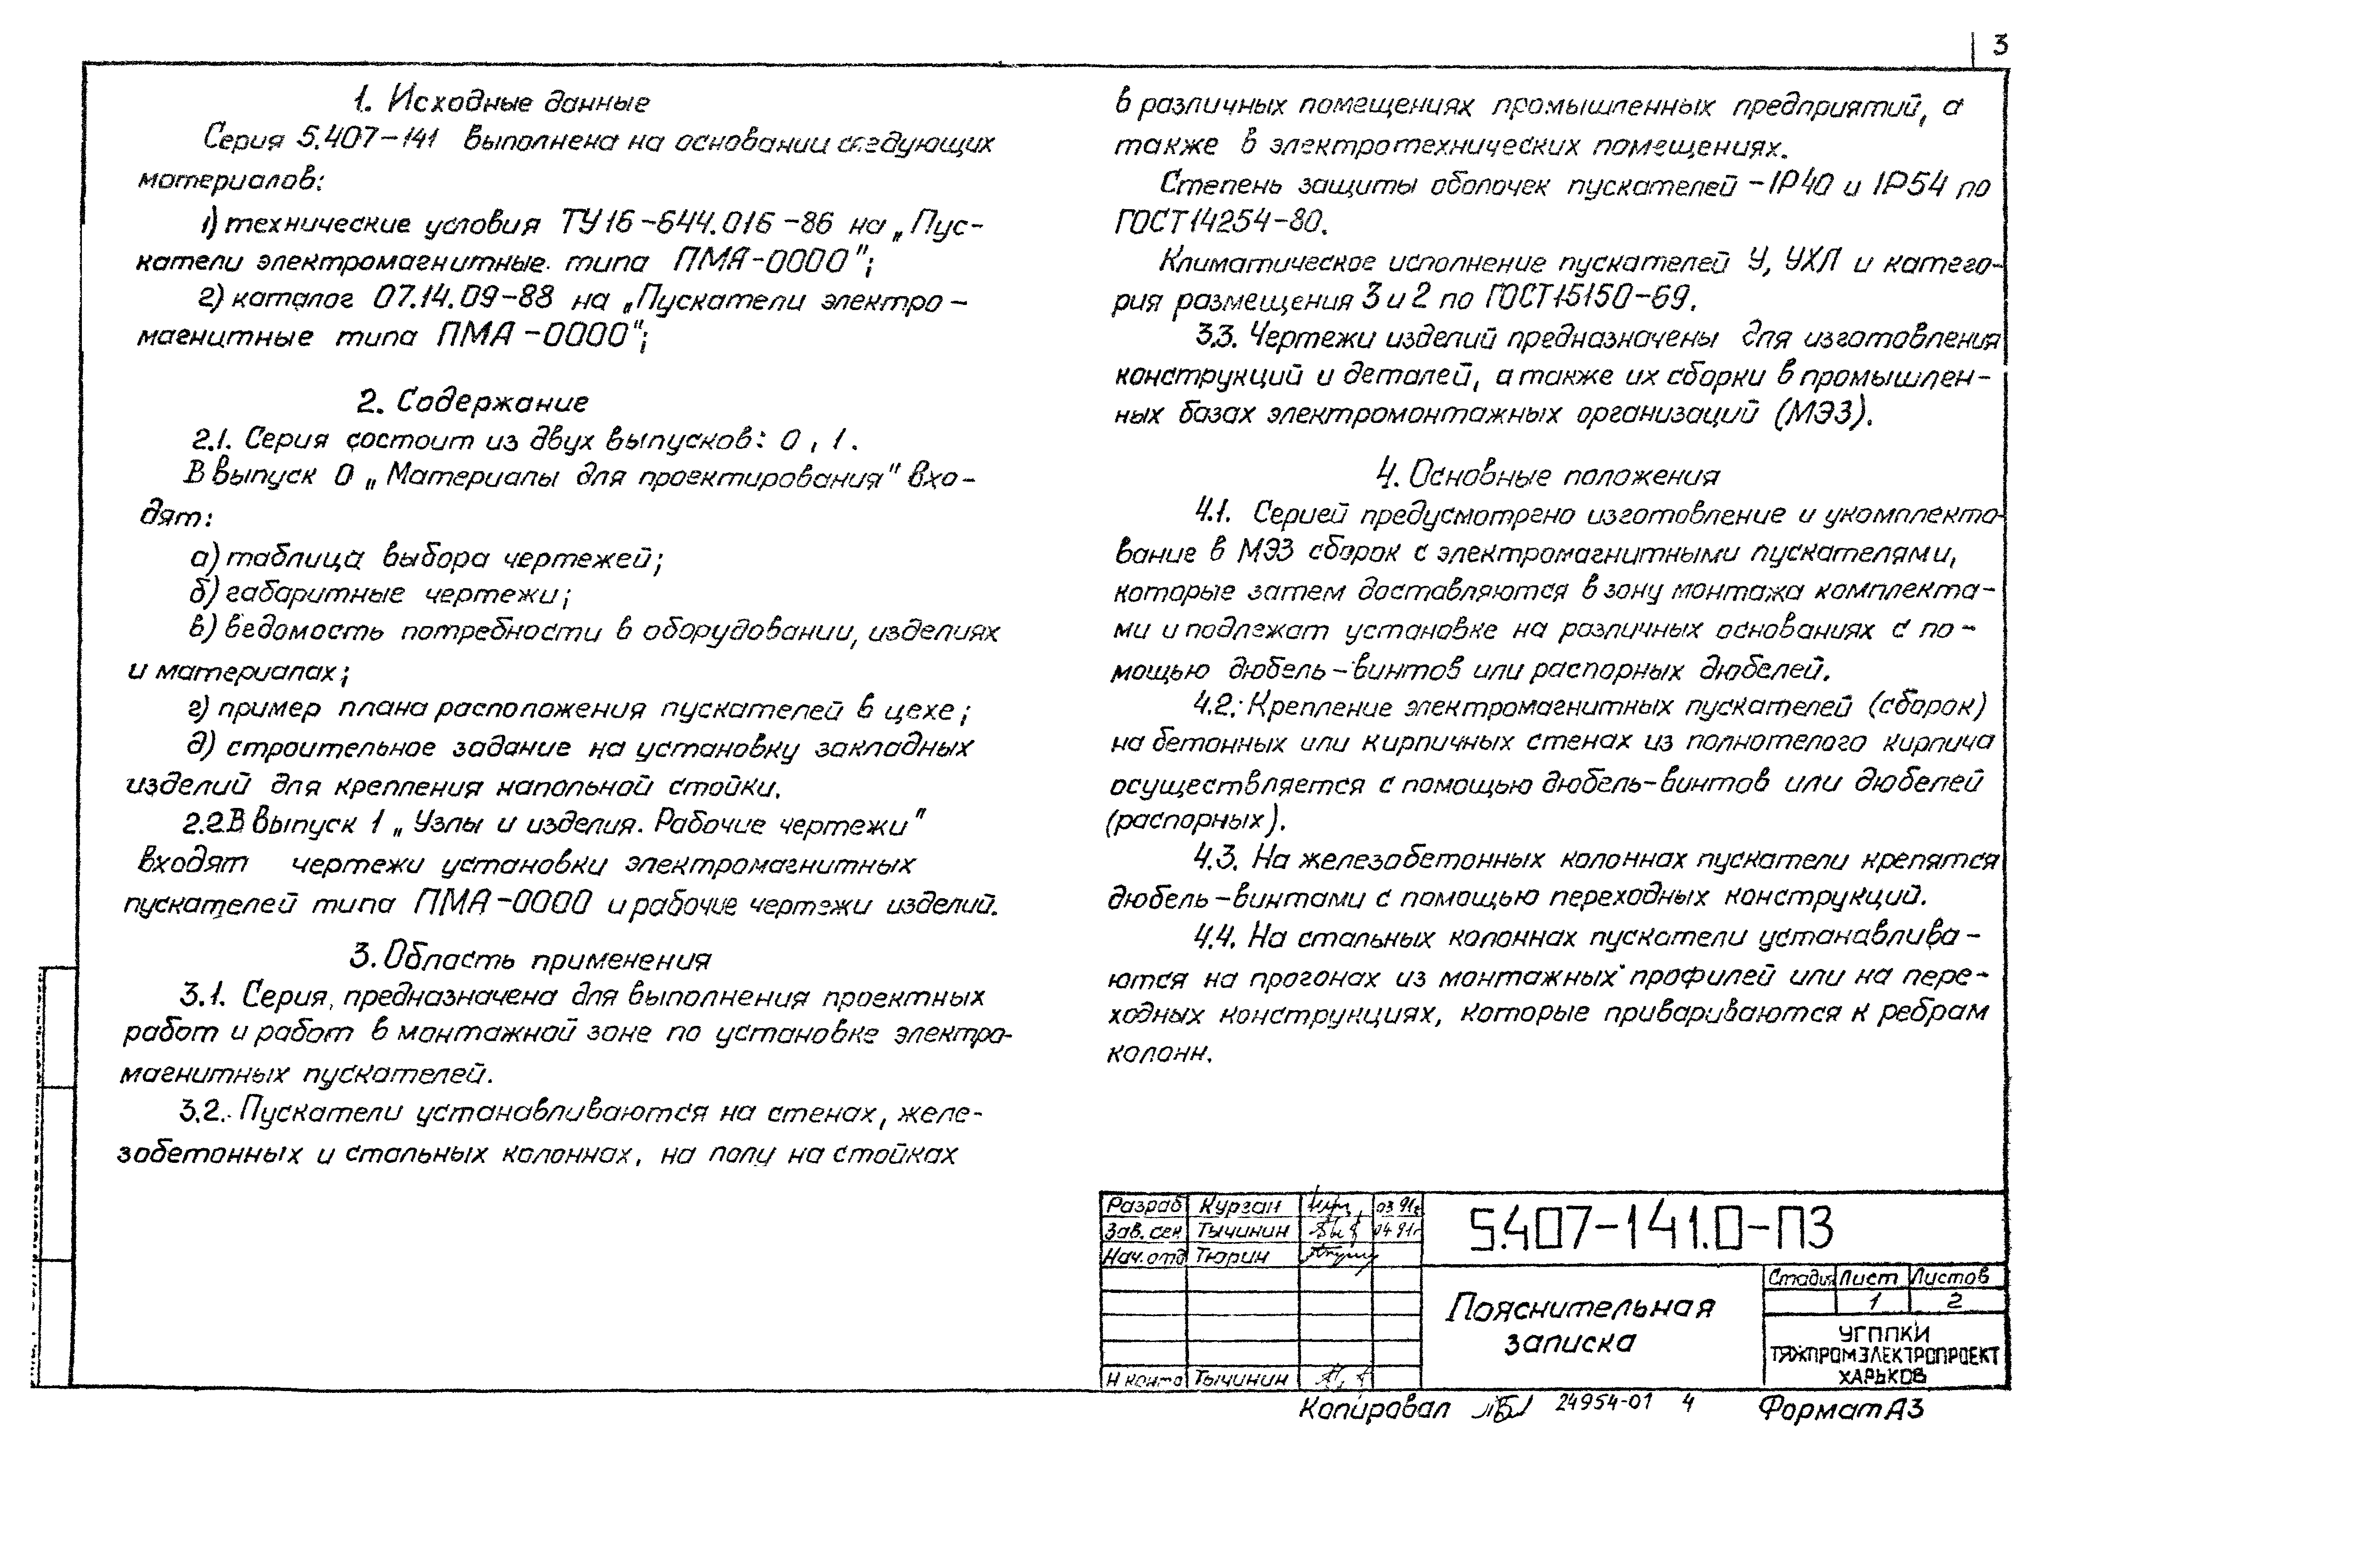 3
1. Исходные данные
Серия 5.407-141 выполнена на основании следующих
материалов:
1) технические условия ТУ16-644.016-86 на „Пус-
катели электромагнитные типа ПМА-0000";
2) каталог 07.14.09-88 на „Пускатели электро-
магнитные типа ПМА-0000";
2. Содержание
2.1. Серия состоит из двух выпусков: 0, 1.
В выпуск 0 „Материалы для проектирования" вхо-
дят:
а) таблица выбора чертежей;
б) габаритные чертежи;
в) ведомость потребности в оборудовании, изделиях
и материалах;
г) пример плана расположения пускателей в цехе;
д) строительное задание на установку закладных
изделий для крепления напольной стойки.
2.2 В выпуск 1 „Узлы и изделия. Рабочие чертежи"
входят чертежи установки электромагнитных
пускателей типа ПМА-0000 и рабочие чертежи изделий.
3. Область применения
3.1. Серия предназначена для выполнения проектных
работ и работ в монтажной зоне по установке электро-
магнитных пускателей.
3.2. Пускатели устанавливаются на стенах, желе-
зобетонных и стальных колоннах, на полу на стойках
в различных помещениях промышленных предприятий, а
также в электротехнических помещениях.
Степень защиты оболочек пускателей - IP40 и IP54 по
ГОСТ14254-80.
Климатическое исполнение пускателей У, УХЛ и катего-
рия размещения 3 и 2 по ГОСТ15150-69.
3.3. Чертежи изделий предназначены для изготовления
конструкций и деталей, а также их сборки в промышлен-
ных базах электромонтажных организаций (МЭЗ).
4. Основные положения
4.1. Серией предусмотрено изготовление и укомплекто-
вание в МЭЗ сборок с электромагнитными пускателями,
которые затем доставляются в зону монтажа комплекта-
ми и подлежат установке на различных основаниях с по-
мощью дюбель-винтов или распорных дюбелей.
4.2. Крепление электромагнитных пускателей (сборок)
на бетонных или кирпичных стенах из полнотелого кирпича
осуществляется с помощью дюбель-винтов или дюбелей
(распорных).
4.3. На железобетонных колоннах пускатели крепятся
дюбель-винтами с помощью переходных конструкций.
4.4. На стальных колоннах пускатели устанавлива-
ются на прогонах из монтажных профилей или на пере-
ходных конструкциях, которые привариваются к ребрам
колонн.
Разраб Курган 03 91г
Зав. сек Тычинин 04 91г
Нач. отд Тюрин
Н контр Тычинин
5.407-141.0-ПЗ
Пояснительная
записка
Стадия Лист Листов
1 2
УГППКИ
ТЯЖПРОМЭЛЕКТРОПРОЕКТ
ХАРЬКОВ
Копировал 24954-01 4 Формат А3